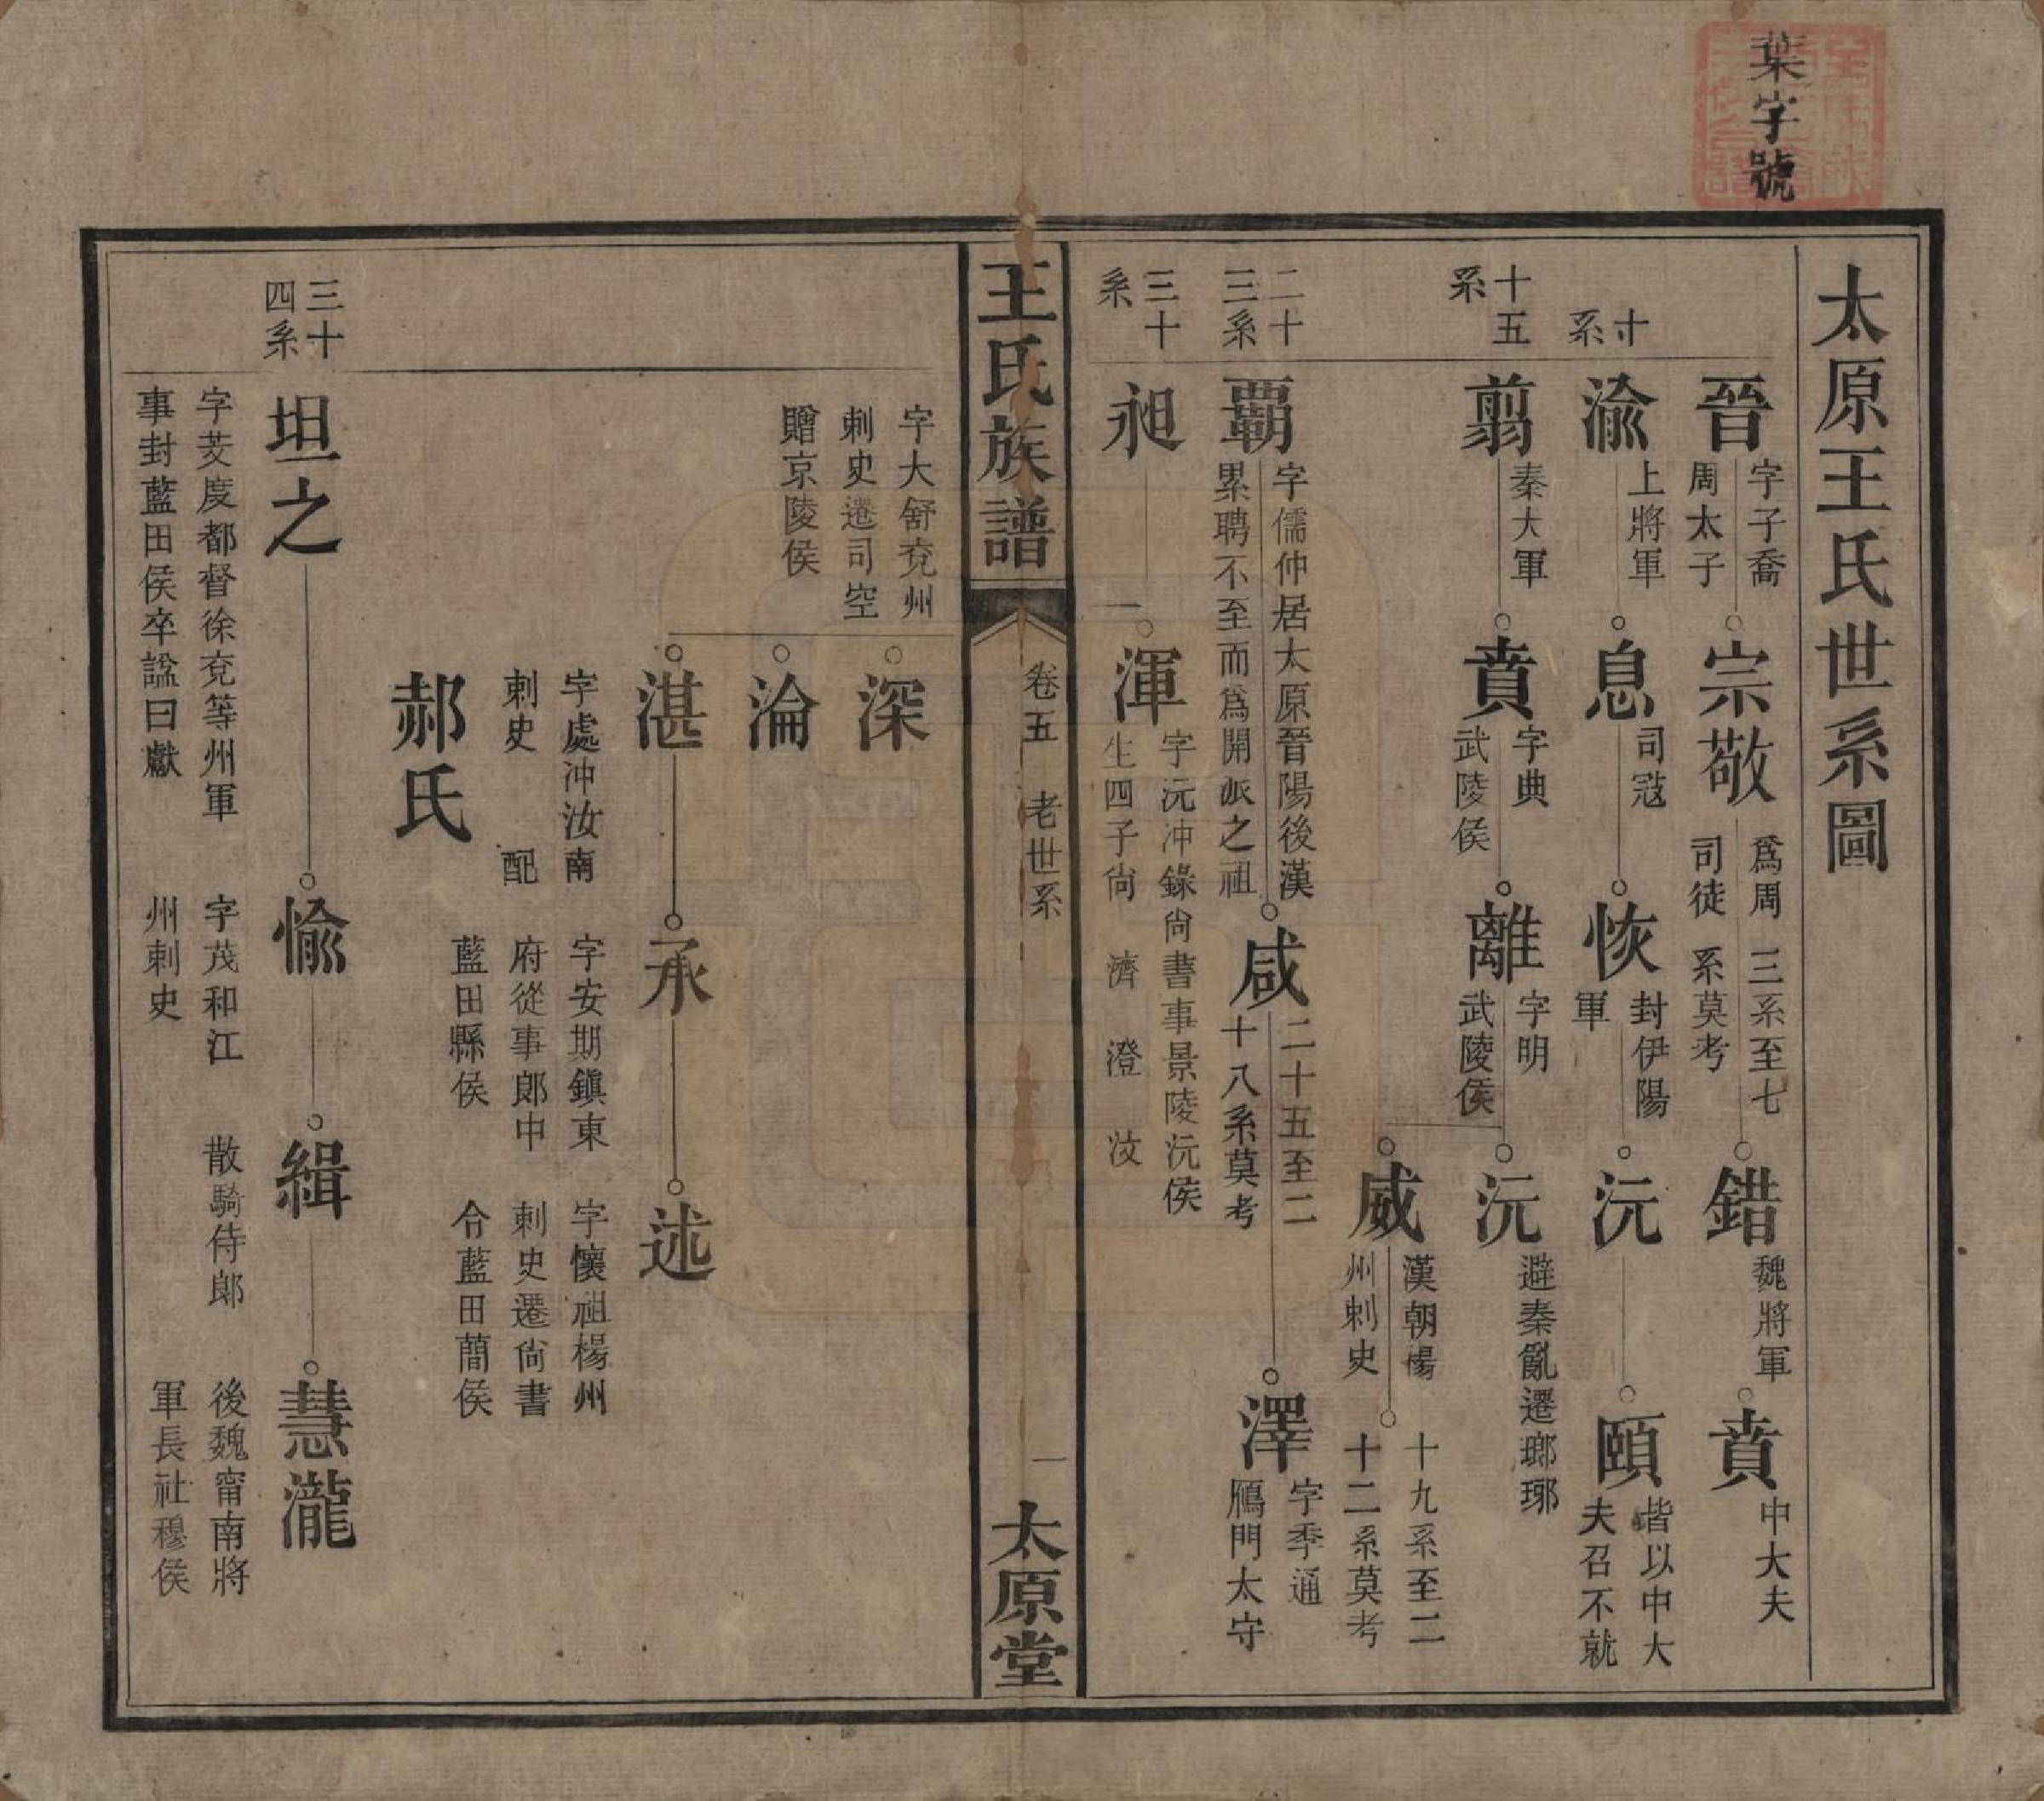 葉字號
太原王氏世系圖
晉
字子喬
周太子
宗敬
爲周
司徒
三系至七
系莫考
錯
魏將軍
賁
中大夫
十系
渝
上將軍
息
司寇
恢
封伊陽
軍
沅
頤
皆以中大
夫召不就
十五系
翦
秦大軍
賁
字典
武陵侯
離
字明
武陵侯
沅
避秦亂遷瑯琊
威
漢朝楊
州刺史
十九系至二
十二系莫考
二十三系
覇
字儒仲居太原晉陽後漢
累聘不至而爲開派之祖
咸
二十五至二
十八系莫考
澤
字季通
鴈門太守
三十系
昶
一
渾
字沅冲錄尙書事景陵沅侯
生四子尙 濟 澄 汶
王氏族譜
卷五 老世系
一
太原堂
字大舒兗州
刺史遷司空
贈京陵侯
深
淪
湛
字處冲汝南
刺史 配
郝氏
承
字安期鎭東
府從事郞中
藍田縣侯
述
字懷祖楊州
刺史遷尙書
令藍田蕳侯
三十四系
坦之
字芆度都督徐兗等州軍
事封藍田侯卒諡曰獻
愉
字茂和江
州刺史
緝
散騎侍郞
慧瀧
後魏甯南將
軍長社穆侯